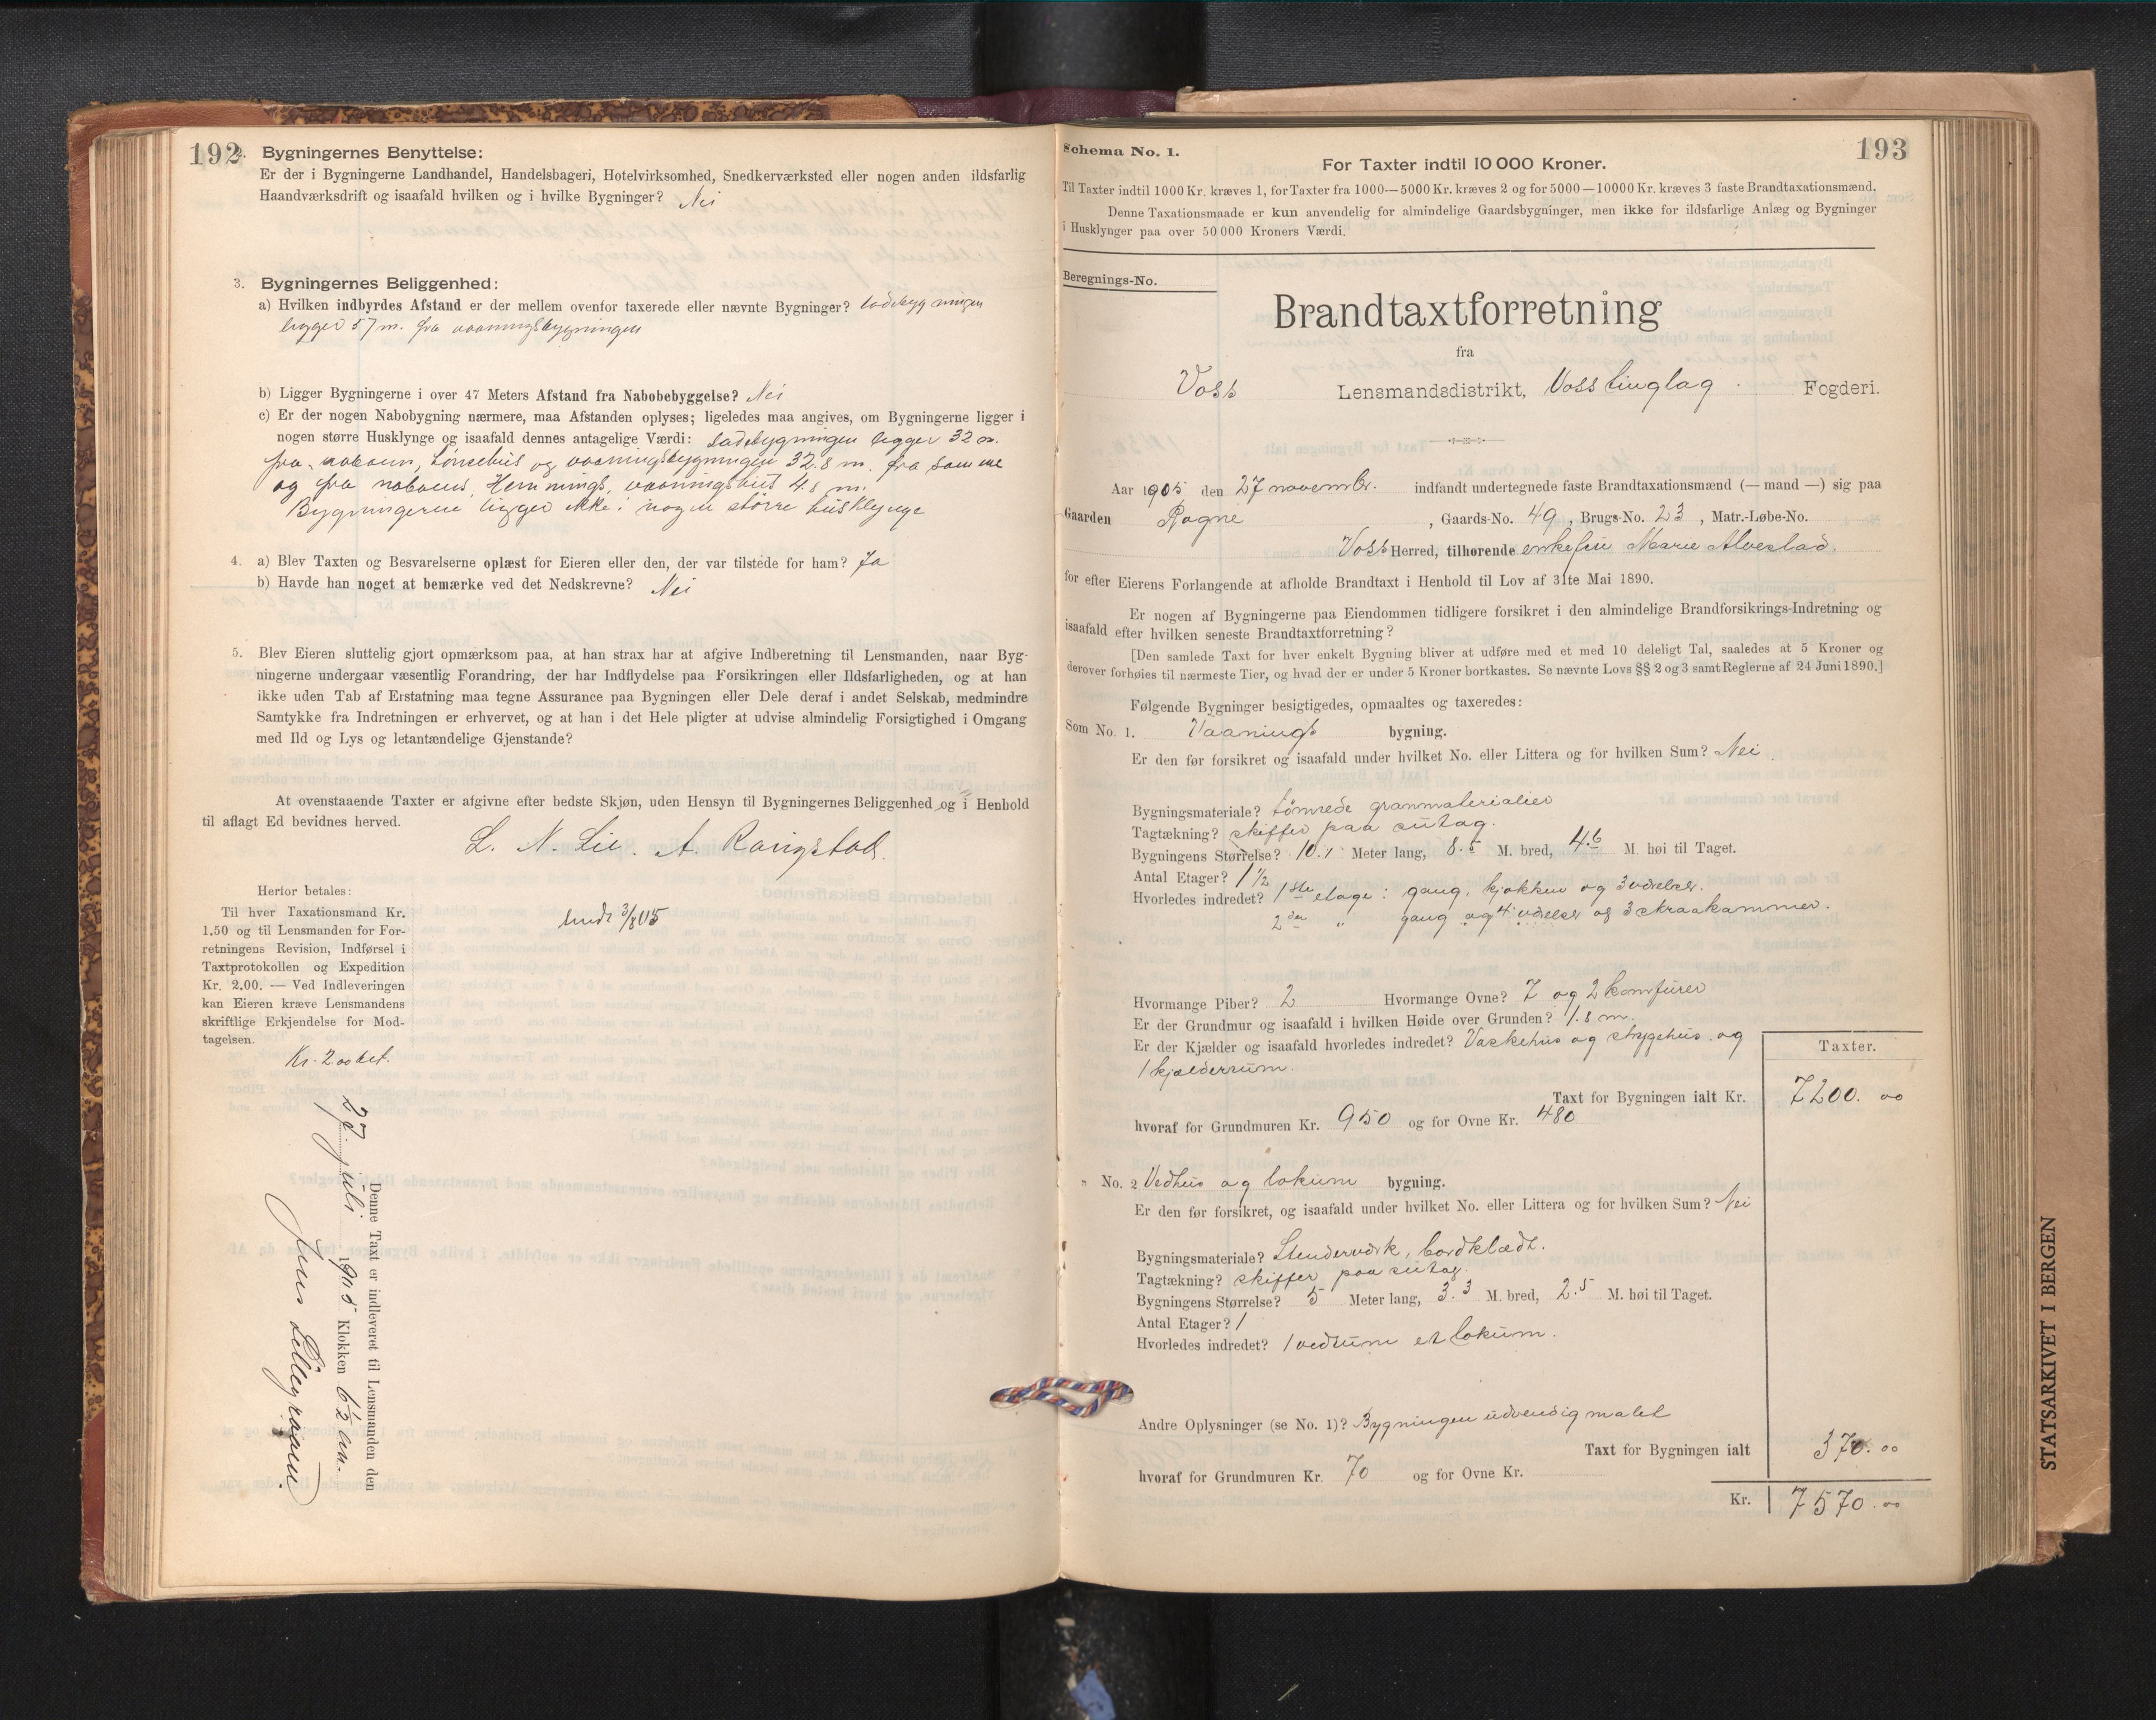 192
2. Bygningernes Benyttelse:
Er der i Bygningerne Landhandel, Handelsbageri, Hotelvirksomhed, Snedkerværksted eller nogen anden ildsfarlig
Haandværksdrift og isaafald hvilken og i hvilke Bygninger? Nei
3. Bygningernes Beliggenhed:
a) Hvilken indbyrdes Afstand er der mellem ovenfor taxerede eller nævnte Bygninger? Ladebygningen
ligger 57 m. fra vaaningsbygningen
b) Ligger Bygningerne i over 47 Meters Afstand fra Nabobebyggelse? Nei
c) Er der nogen Nabobygning nærmere, maa Afstanden oplyses; ligeledes maa angives, om Bygningerne ligger i
nogen større Husklynge og isaafald dennes antagelige Værdi: Ladebygningen ligger 32 m.
fra naboens, og vaaningsbygningen 32.8 m. fra samme
og fra naboens, Hemnings, vaaningshus 4.8 m.
Bygningerne ligger ikke i nogen større husklynge
4. a) Blev Taxten og Besvarelserne oplæst for Eieren eller den, der var tilstede for ham? Ja
b) Havde han noget at bemærke ved det Nedskrevne? Nei
5. Blev Eieren sluttelig gjort opmærksom paa, at han strax har at afgive Indberetning til Lensmanden, naar Byg-
ningerne undergaar væsentlig Forandring, der har Indflydelse paa Forsikringen eller Ildsfarligheden, og at han
ikke uden Tab af Erstatning maa tegne Assurance paa Bygningen eller Dele deraf i andet Selskab, medmindre
Samtykke fra Indretningen er erhvervet, og at han i det Hele pligter at udvise almindelig Forsigtighed i Omgang
med Ild og Lys og letantændelige Gjenstande?
At ovenstaaende Taxter er afgivne efter bedste Skjøn, uden Hensyn til Bygningernes Beliggenhed og i Henhold
til aflagt Ed bevidnes herved.
L. N. Lie. A. Rongstad.
Herfor betales:
Til hver Taxationsmand Kr.
1.50 og til Lensmanden for For-
retningens Revision, Indførsel i
Taxtprotokollen og Expedition
Kr. 2.00. — Ved Indleveringen
kan Eieren kræve Lensmandens
skriftlige Erkjendelse for Mod-
tagelsen.
sendt 3/8 05
Kr. 2.00 bet.
Denne Taxt er indleveret til Lensmanden den
27. juli 1905 Klokken 6½ em.
Jens Lillegraven.
193
Schema No. 1.
For Taxter indtil 10 000 Kroner.
Til Taxter indtil 1000 Kr. kræves 1, for Taxter fra 1000—5000 Kr. kræves 2 og for 5000—10000 Kr. kræves 3 faste Brandtaxationsmænd.
Denne Taxationsmaade er kun anvendelig for almindelige Gaardsbygninger, men ikke for ildsfarlige Anlæg og Bygninger
i Husklynger paa over 50 000 Kroners Værdi.
Beregnings-No.
Brandtaxtforretning
fra
Voss Lensmandsdistrikt, Voss tinglag. Fogderi.
Aar 1905 den 27 novembr. indfandt undertegnede faste Brandtaxationsmænd (— mand —) sig paa
Gaarden Rogne, Gaards-No. 49, Brugs-No. 23, Matr.-Løbe-No.
Voss Herred, tilhørende enkefru Marie Alvestad.
for efter Eierens Forlangende at afholde Brandtaxt i Henhold til Lov af 31te Mai 1890.
Er nogen af Bygningerne paa Eiendommen tidligere forsikret i den almindelige Brandforsikrings-Indretning og
isaafald efter hvilken seneste Brandtaxtforretning?
[Den samlede Taxt for hver enkelt Bygning bliver at udføre med et med 10 deleligt Tal, saaledes at 5 Kroner og
derover forhøies til nærmeste Tier, og hvad der er under 5 Kroner bortkastes. Se nævnte Lovs §§ 2 og 3 samt Reglerne af 24 Juni 1890.]
Følgende Bygninger besigtigedes, opmaaltes og taxeredes:
Som No. 1. Vaanings bygning.
Er den før forsikret og isaafald under hvilket No. eller Littera og for hvilken Sum? Nei
Bygningsmateriale? tømrede granmaterialier
Tagtækning? skiffer paa sutag.
Bygningens Størrelse? 10.1 Meter lang, 8.5 M. bred, 4.6 M. høi til Taget.
Antal Etager? 1 1/2
Hvorledes indret? 1ste etage: gang, kjøkken og 3 værelser.
2den " gang og 4 værelser og 3 skraakammer.
Hvormange Piber? 2 Hvormange Ovne? 7 og 2 komfurer
Er der Grundmur og isaafald i hvilken Høide over Grunden? 1.8 m.
Er der Kjælder og isaafald hvorledes indredet? Vaskehus og strygehus og
1 kjælderrum.
Taxter.
Taxt for Bygningen ialt Kr. 7200. 00
hvoraf for Grundmuren Kr. 950 og for Ovne Kr. 480
" No. 2 Vedhus og lokum bygning.
Er den før forsikret, og isaafald under hvilket No. eller Littera og for hvilken Sum? Nei
Bygningsmateriale? Stenderværk, bordklædt.
Tagtækning? skiffer paa sutag.
Bygningens Størrelse? 5 Meter lang, 3.3 M. bred, 2.5 M. høi til Taget.
Antal Etager? 1
Hvorledes indredet? 1 vedrum et lokum.
Andre Oplysninger (se No. 1)? Bygningen udvendig malet
Taxt for Bygningen ialt 370. 00
hvoraf for Grundmuren Kr. 70 og for Ovne Kr.
Kr. 7570. 00
STATSARKIVET I BERGEN